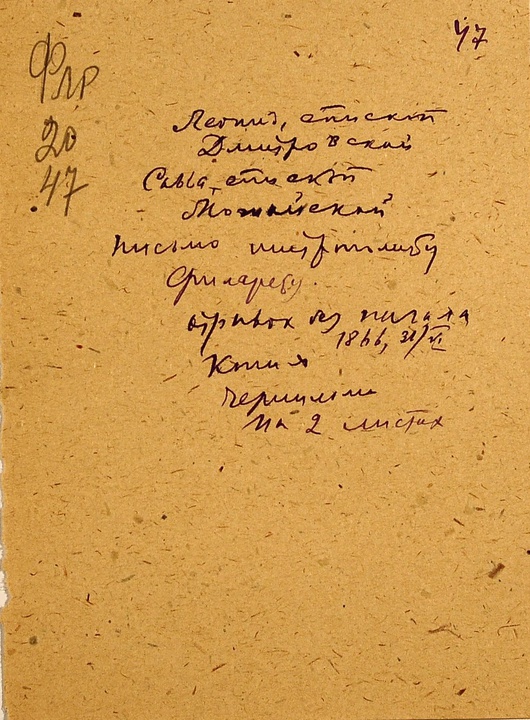 47
ФЛР
20
47
Леонид, епископ
Дмитровский
Савва, епископ
Можайский
письмо митрополиту
Филарету
отрывок без начала
1866, 31/VI
Копия
Чернилами
На 2 листах